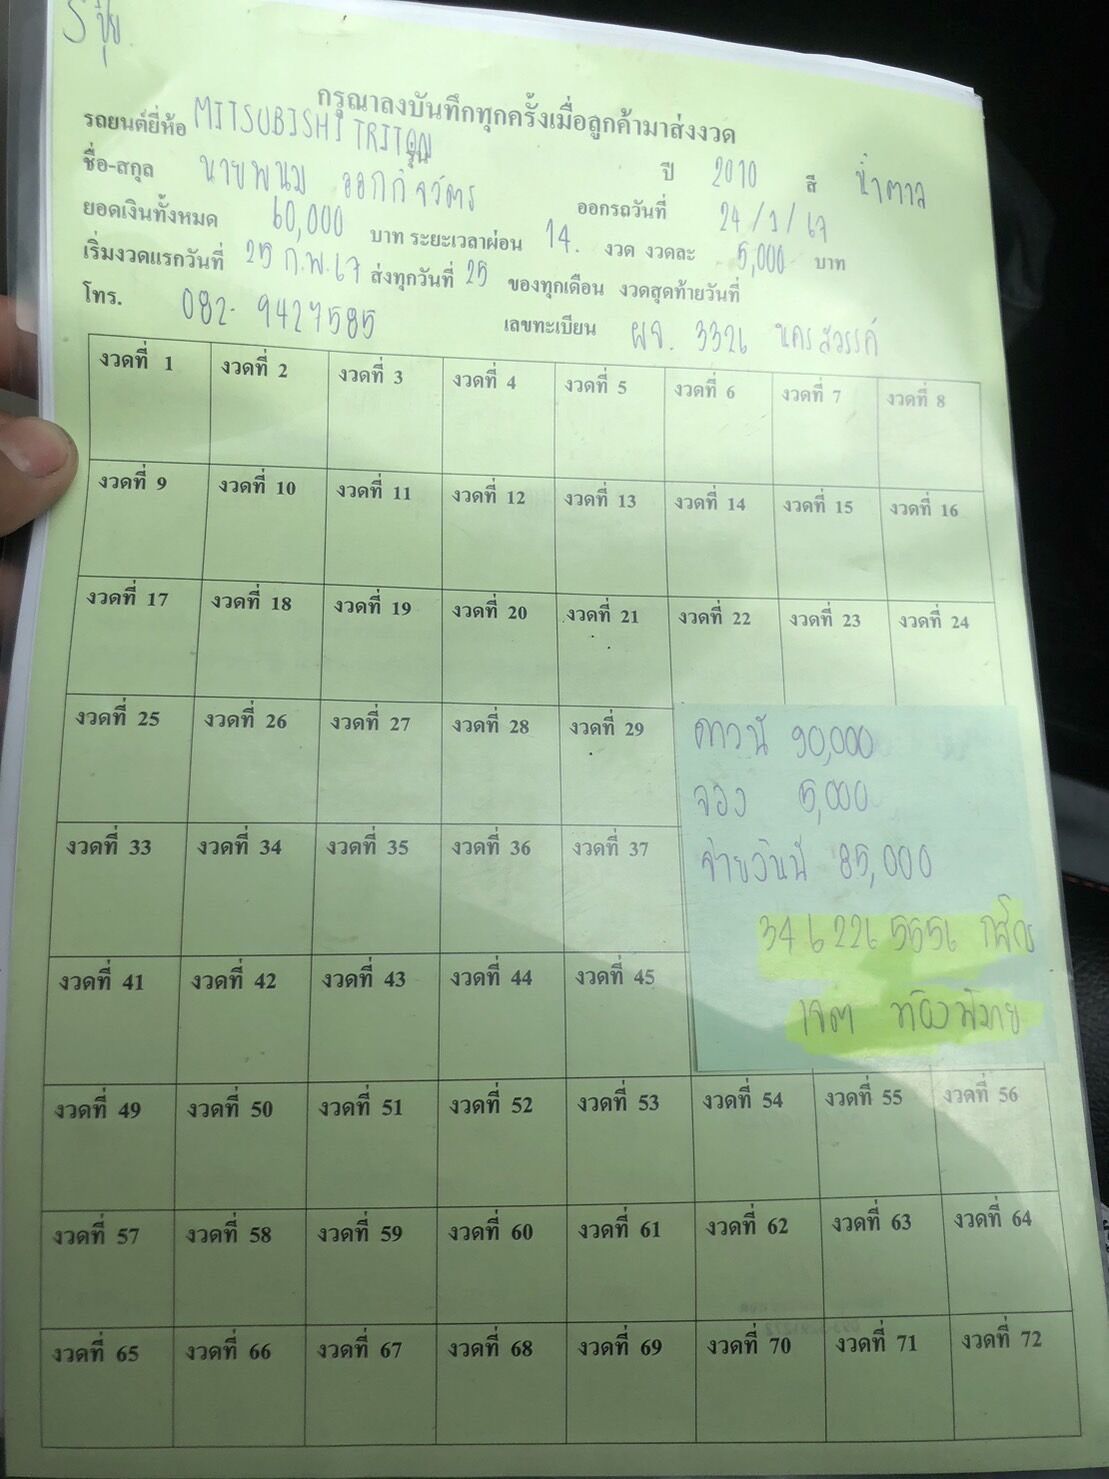 ปุ้ย
กรุณาลงบันทึกทุกครั้งเมื่อลูกค้ามาส่งงวด
รถยนต์ยี่ห้อ MITSUBISHI TRITON รุ่น ปี 2010 สี น้ำตาล
ชื่อ-สกุล นายพนม ออกกิจวัตร ออกรถวันที่ 24/1/67
ยอดเงินทั้งหมด 60,000 บาท ระยะเวลาผ่อน 14. งวด งวดละ 5,000 บาท
เริ่มงวดแรกวันที่ 25 ก.พ. 67 ส่งทุกวันที่ 25 ของทุกเดือน งวดสุดท้ายวันที่
โทร. 082-9427585 เลขทะเบียน ผจ. 3326 นครสวรรค์
งวดที่ 1 งวดที่ 2 งวดที่ 3 งวดที่ 4 งวดที่ 5 งวดที่ 6 งวดที่ 7 งวดที่ 8
งวดที่ 9 งวดที่ 10 งวดที่ 11 งวดที่ 12 งวดที่ 13 งวดที่ 14 งวดที่ 15 งวดที่ 16
งวดที่ 17 งวดที่ 18 งวดที่ 19 งวดที่ 20 งวดที่ 21 งวดที่ 22 งวดที่ 23 งวดที่ 24
งวดที่ 25 งวดที่ 26 งวดที่ 27 งวดที่ 28 งวดที่ 29
งวดที่ 33 งวดที่ 34 งวดที่ 35 งวดที่ 36 งวดที่ 37
งวดที่ 41 งวดที่ 42 งวดที่ 43 งวดที่ 44 งวดที่ 45
ดาวน์ 90,000
จอง 5,000
จ่ายวันนี้ 85,000
346 226 5556 กสิกร
เจต
งวดที่ 49 งวดที่ 50 งวดที่ 51 งวดที่ 52 งวดที่ 53 งวดที่ 54 งวดที่ 55 งวดที่ 56
งวดที่ 57 งวดที่ 58 งวดที่ 59 งวดที่ 60 งวดที่ 61 งวดที่ 62 งวดที่ 63 งวดที่ 64
งวดที่ 65 งวดที่ 66 งวดที่ 67 งวดที่ 68 งวดที่ 69 งวดที่ 70 งวดที่ 71 งวดที่ 72